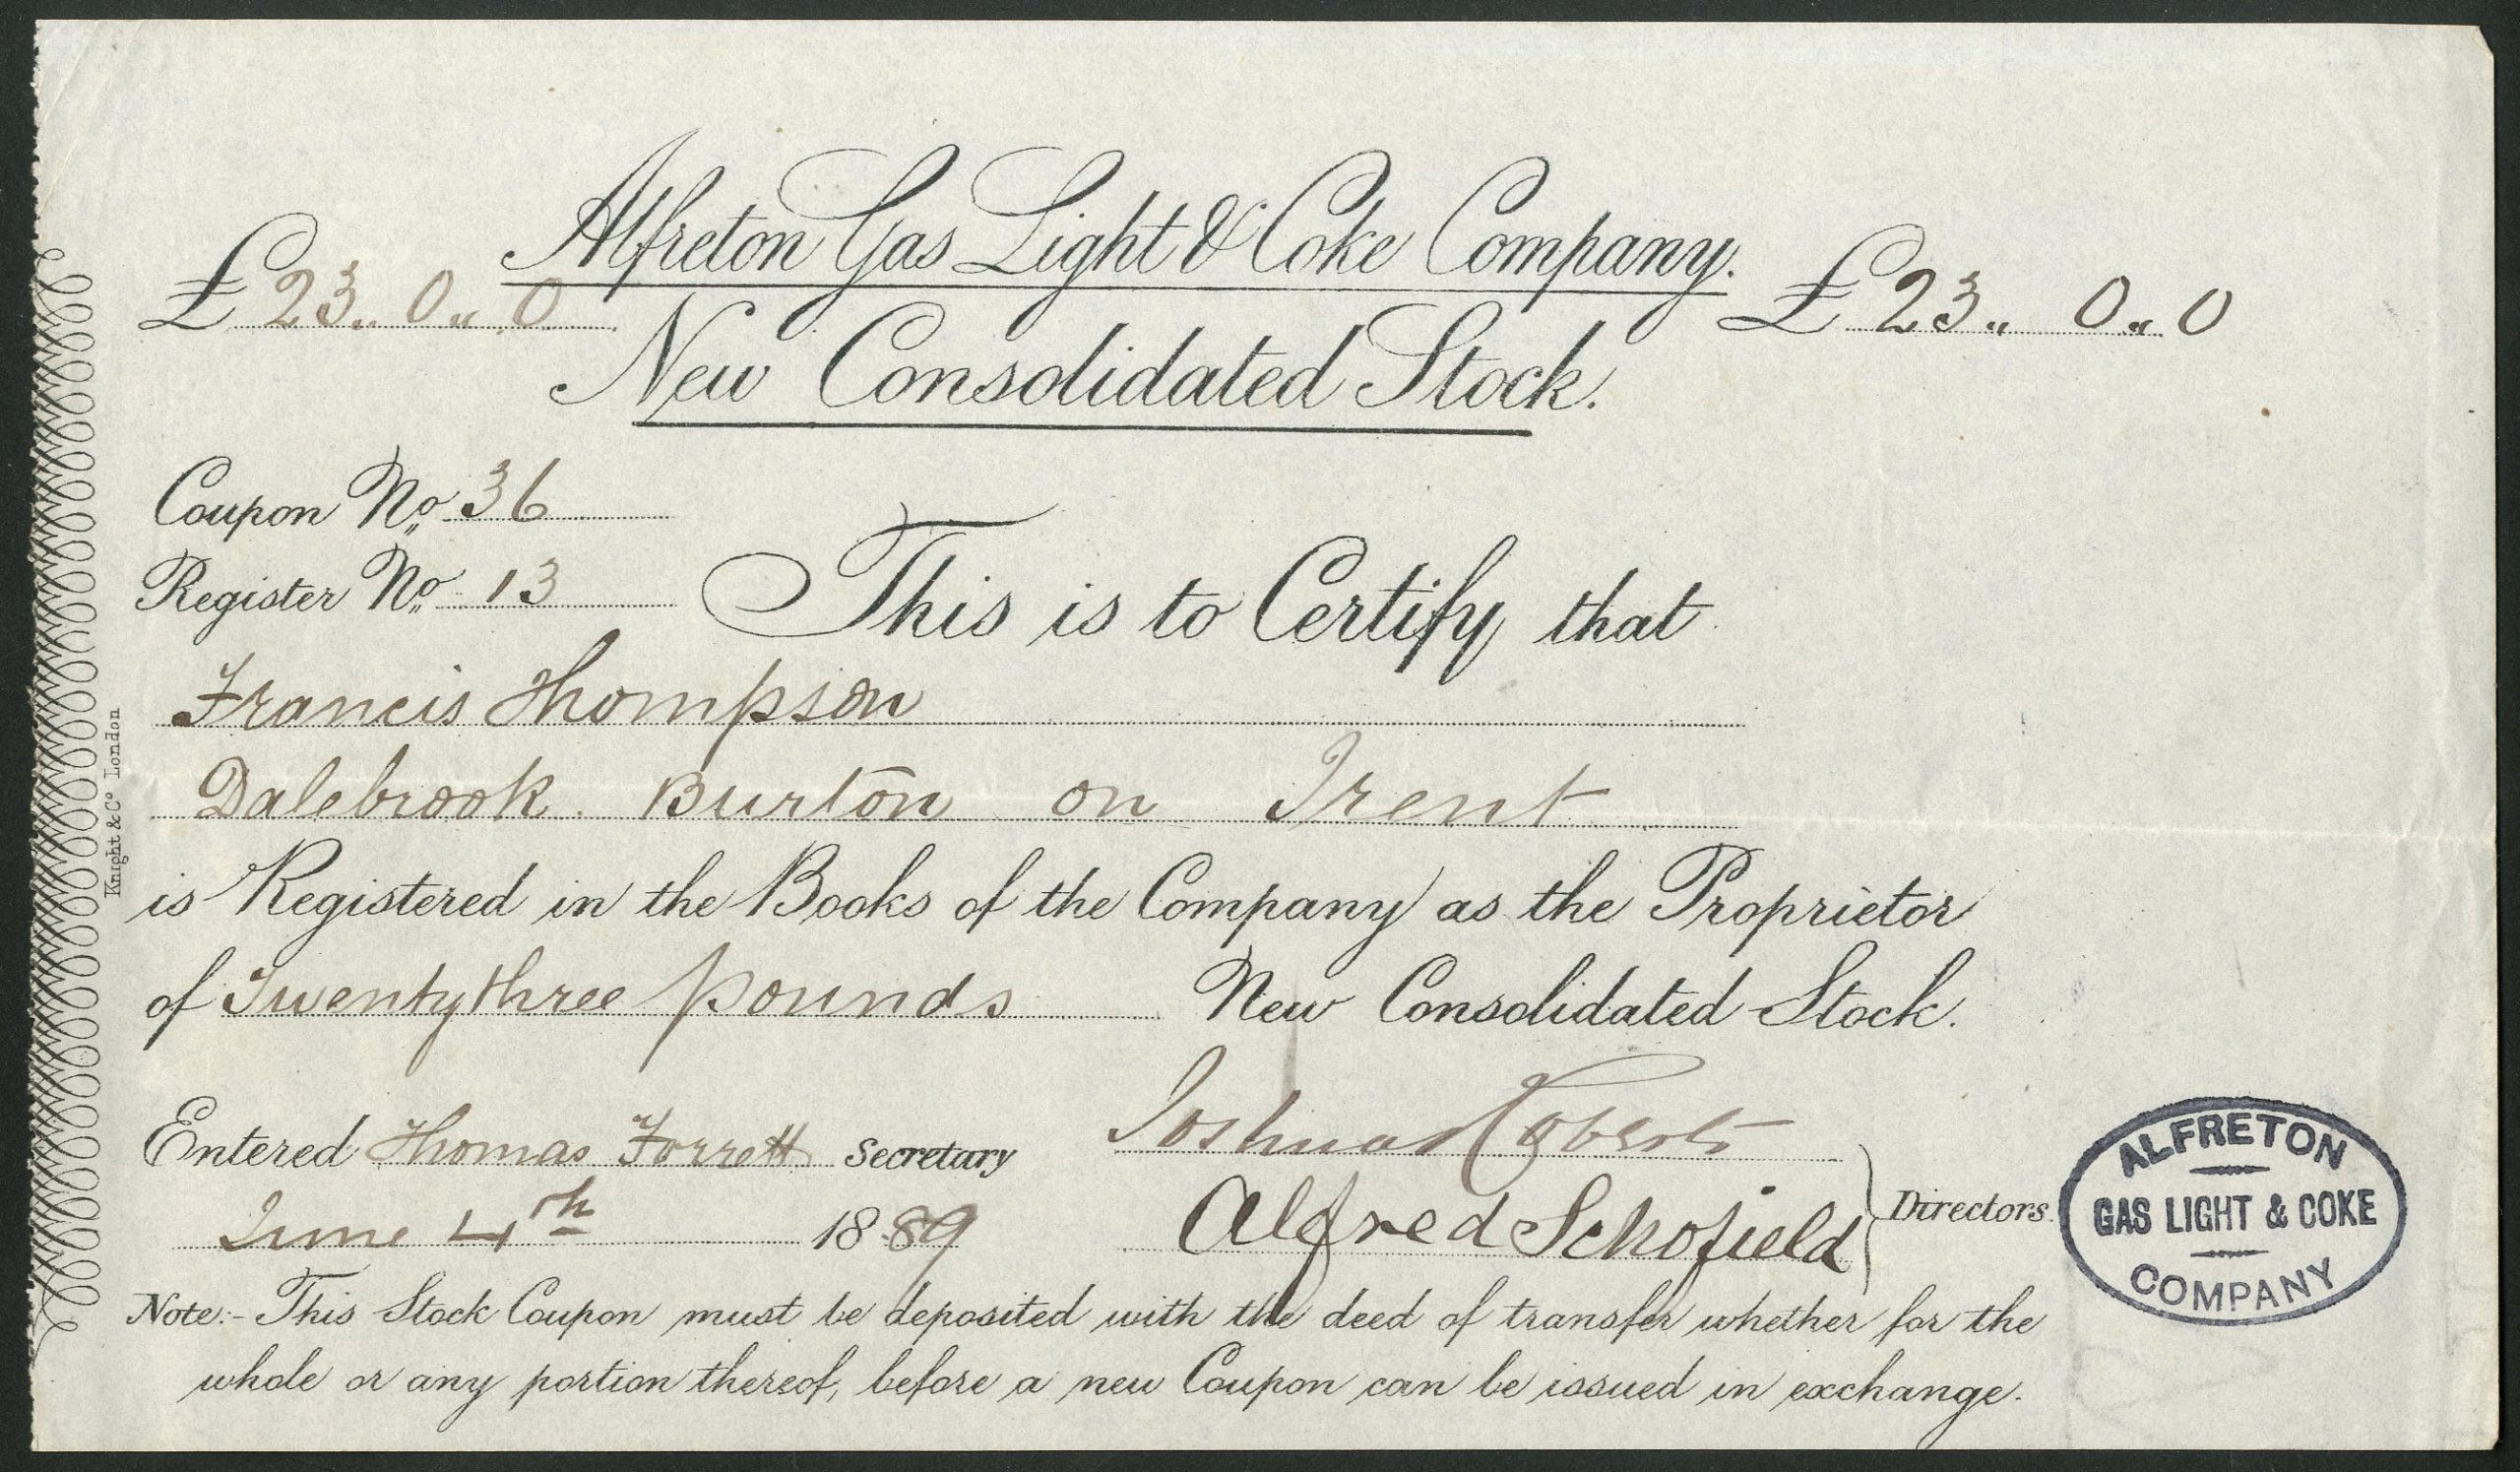 Alfreton Gas Light & Coke Company.
£ 23 „ 0 „ 0
£ 23 „ 0 „ 0
New Consolidated Stock.
Coupon No 36
Register No 13
This is to Certify that
Francis Thompson
Dalebrook. Burton on Trent
is Registered in the Books of the Company as the Proprietor
of Twentythree pounds New Consolidated Stock.
Entered Thomas Forrett Secretary
June 4th 1889
Joshua Roberts
Alfred Schofield
Directors.
ALFRETON
GAS LIGHT & COKE
COMPANY
Note:- This Stock Coupon must be deposited with the deed of transfer whether for the
whole or any portion thereof, before a new Coupon can be issued in exchange.
Knight & Co London